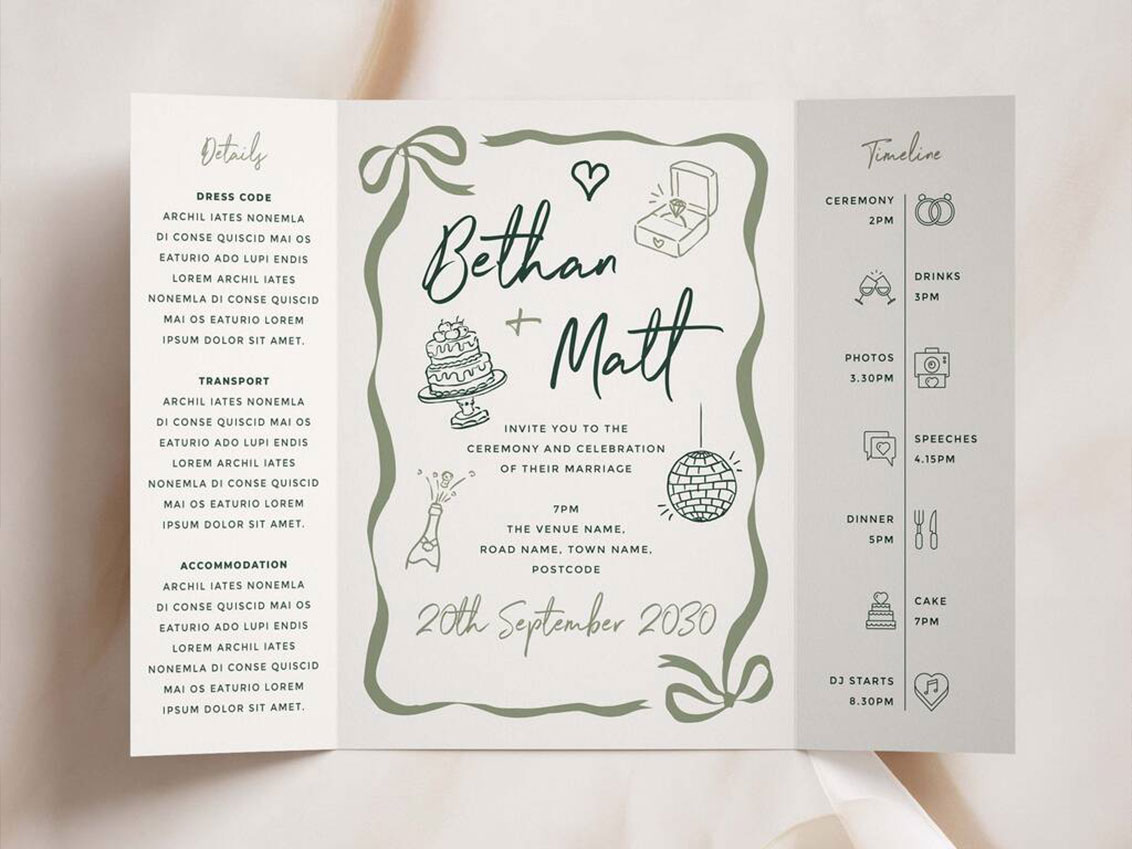 Details
DRESS CODE
ARCHIL IATES NONEMLA
DI CONSE QUISCID MAI OS
EATURIO ADO LUPI ENDIS
LOREM ARCHIL IATES
NONEMLA DI CONSE QUISCID
MAI OS EATURIO LOREM
IPSUM DOLOR SIT AMET.
TRANSPORT
ARCHIL IATES NONEMLA
DI CONSE QUISCID MAI OS
EATURIO ADO LUPI ENDIS
LOREM ARCHIL IATES
NONEMLA DI CONSE QUISCID
MAI OS EATURIO LOREM
IPSUM DOLOR SIT AMET.
ACCOMMODATION
ARCHIL IATES NONEMLA
DI CONSE QUISCID MAI OS
EATURIO ADO LUPI ENDIS
LOREM ARCHIL IATES
NONEMLA DI CONSE QUISCID
MAI OS EATURIO LOREM
IPSUM DOLOR SIT AMET.
Bethan
+
Matt
INVITE YOU TO THE
CEREMONY AND CELEBRATION
OF THEIR MARRIAGE
7PM
THE VENUE NAME,
ROAD NAME, TOWN NAME,
POSTCODE
20th September 2030
Timeline
CEREMONY
2PM
DRINKS
3PM
PHOTOS
3.30PM
SPEECHES
4.15PM
DINNER
5PM
CAKE
7PM
DJ STARTS
8.30PM